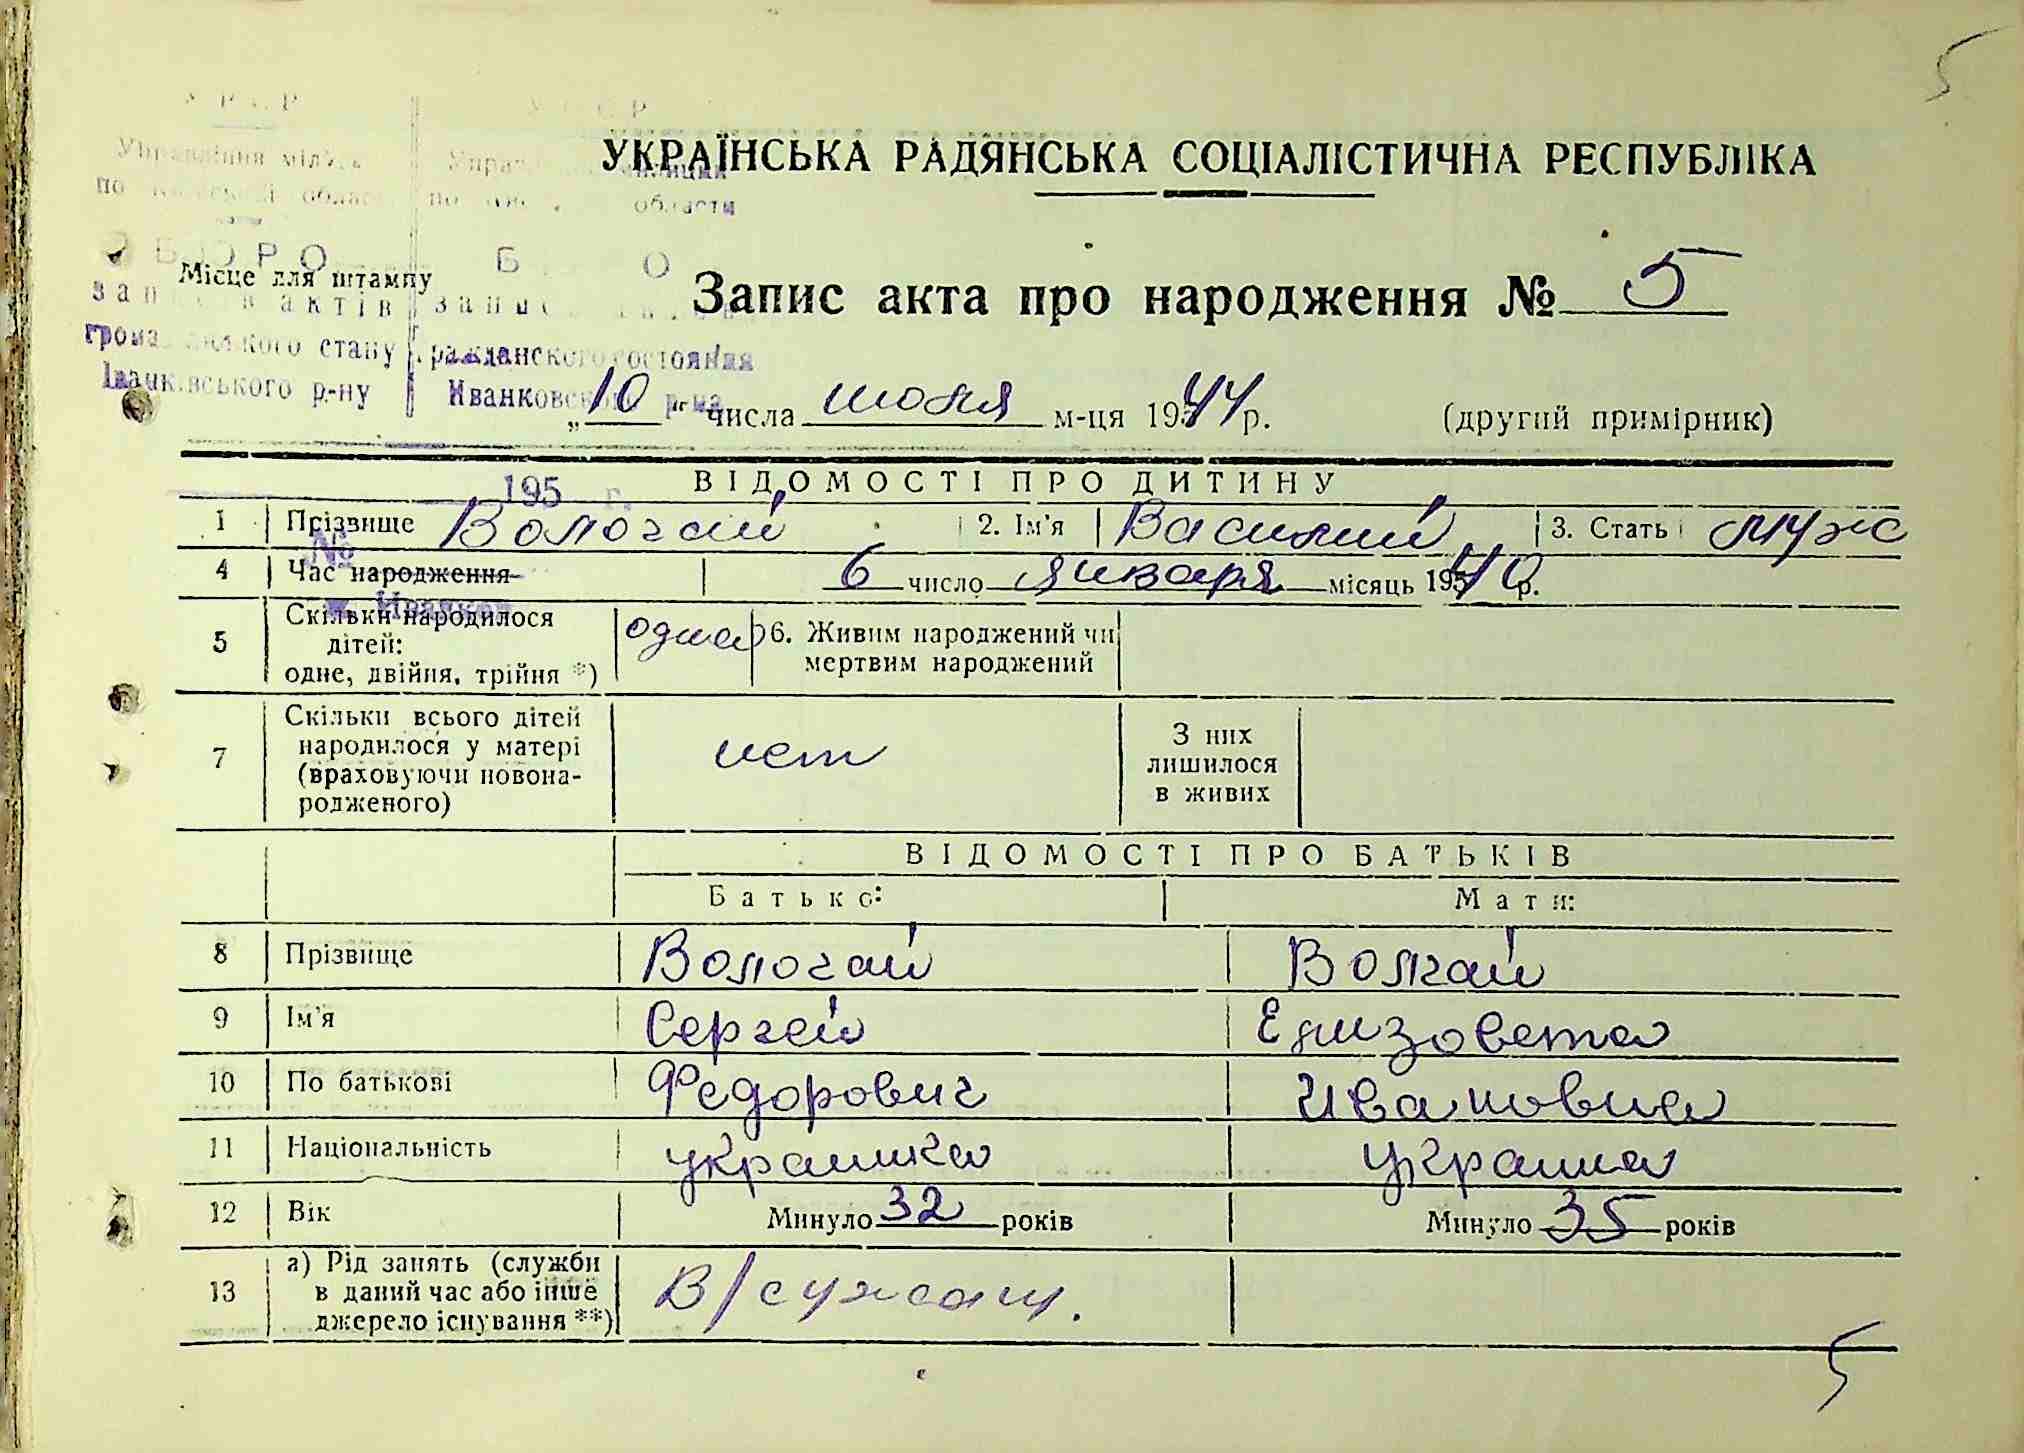 5
УКРАЇНСЬКА РАДЯНСЬКА СОЦІАЛІСТИЧНА РЕСПУБЛІКА
Управління
по області
области
БЮРО
Місце для штампу
актів
громадського стану
гражданского состояния
Іванківського р-ну
Иванковского р-на
195 г.
№
Запис акта про народження № 5
„10“ числа июня м-ця 1944 р. (другий примірник)
ВІДОМОСТІ ПРО ДИТИНУ
1 Прізвище Вологай 2. Ім'я Василий 3. Стать муж
4 Час народження 6 число января місяць 1940 р.
5 Скільки народилося дітей: одне, двійня, трійня *) 6. Живим народжений чи мертвим народжений
7 Скільки всього дітей народилося у матері (враховуючи новонародженого) нет З них лишилося в живих
ВІДОМОСТІ ПРО БАТЬКІВ
Батько: Мати:
8 Прізвище Вологай Волгай
9 Ім'я Сергей Елизовета
10 По батькові Федорович Ивановна
11 Національність
12 Вік Минуло 32 років Минуло 35 років
13 а) Рід занять (служби в даний час або інше джерело існування **)
5